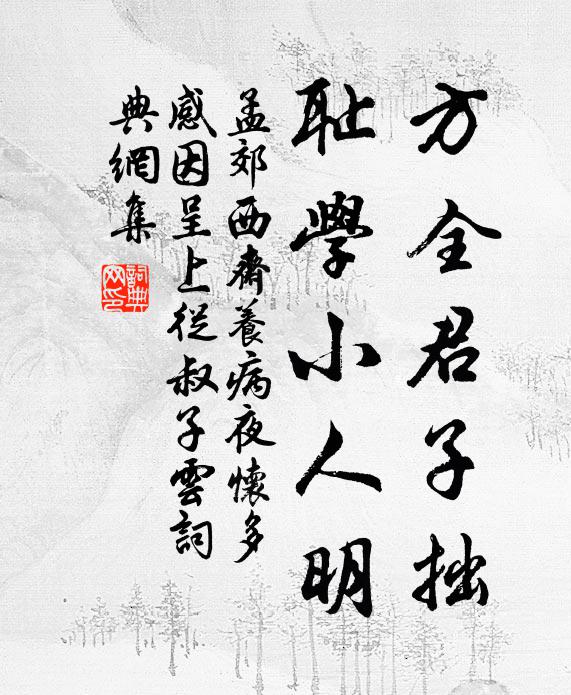 方全君子拙
耻學小人明
孟郊西齋養病夜懷多
感因呈上從叔子雲詞
典網集
詞典
网印